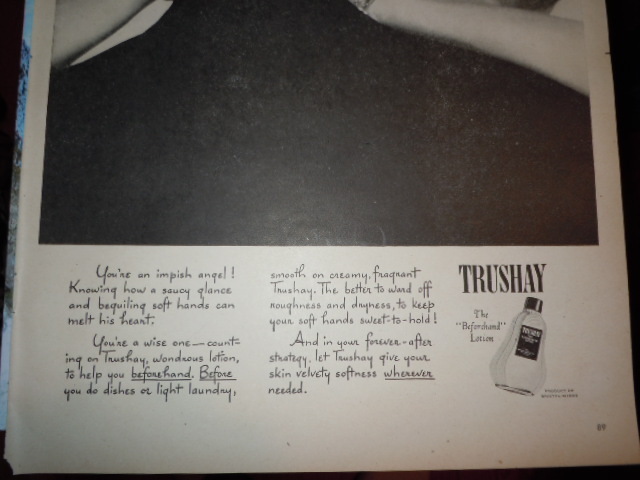 You're an impish angel!
Knowing how a saucy glance
and beguiling soft hands can
melt his heart.
You're a wise one—count-
ing on Trushay, wondrous lotion,
to help you beforehand. Before
you do dishes or light laundry,
smooth on creamy, fragrant
Trushay. The better to ward off
roughness and dryness, to keep
your soft hands sweet-to-hold!
And in your forever-after
strategy, let Trushay give your
skin velvety softness wherever
needed.
TRUSHAY
The
"Beforehand"
Lotion
TRUSHAY
PRODUCT OF
BRISTOL-MYERS
89